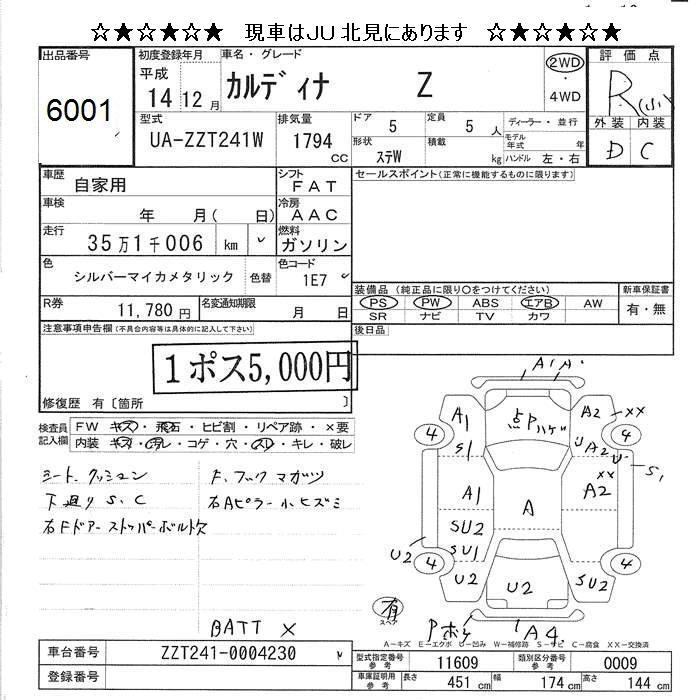 ☆★☆★☆★ 現車はJU北見にあります ☆★☆★☆★
出品番号 初度登録年月 車名・グレード 評価点
平成 カルディナ Z 2WD R(小)
6001 14 12月 ・ 4WD
型式 排気量 ドア 5 定員 5 人 ディーラー・並行 外装 内装
UA-ZZT241W 1794 cc 形状 ステW 積載 kg モデル年式 年 D C
ハンドル 左・右
車歴 自家用 シフト FAT セールスポイント(正常に機能するものに限ります)
車検 年 月( 日) 冷房 AAC
走行 35万1千006 km 燃料 ガソリン
色 シルバーマイカメタリック 色替 色コード 1E7
装備品(純正品に限り○をつけてください) 新車保証書
PS PW ABS エアB AW 有・無
R券 11,780円 名変通知期限 月 日 SR ナビ TV カワ
注意事項申告欄(不具合内容等は具体的に記入して下さい) 後日品
1ポス5,000円
修復歴 有〔箇所 〕
検査員記入欄 FW キズ・飛石・ヒビ割・リペア跡・×要
内装 キズ・汚レ・コゲ・穴・スレ・キレ・破レ
シート、クッション F、フック マガツ
下廻り S、C 右Aピラー小ヒズミ
右Fドアーストッパーボルト欠
A1 A1
A1 点Pハゲ A2 XX
4 4
S1 A2 U
S1
A1 A XX A2
SU2
SU1
U2 4 4
U2 U2 SU2
有
スペア Pボケ A4
BATT ×
A-キズ E-エクボ U-凹み W-補修跡 S-サビ C-腐食 XX-交換済
車台番号 ZZT241-0004230 型式指定番号 参考 11609 類別区分番号 参考 0009
登録番号 車庫証明用 参考 長さ 451 cm 幅 174 cm 高さ 144 cm